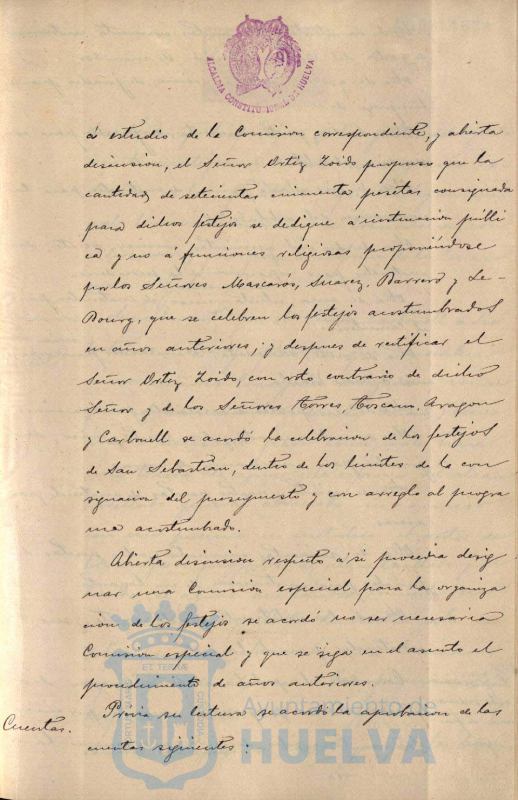 ALCALDIA CONSTITUCIONAL DE HUELVA
á estudio de la Comision correspondiente, y abierta
discusion, el Señor Ortiz Zoido propuso que la
cantidad de setecientas cincuenta pesetas consignada
para dichos festejos se dedique á instruccion públi
ca y no á funciones religiosas proponiéndose
por los Señores Mascarós, Suarez, Barrero y Le-
Bourg, que se celebren los festejos acostumbrados
en años anteriores; y despues de rectificar el
Señor Ortiz Zoido, con voto contrario de dicho
Señor y de los Señores Torres, Toscano, Aragon
y Carbonell se acordó la celebracion de los festejos
de San Sebastian, dentro de los límites de la con
signacion del presupuesto y con arreglo al progra
ma acostumbrado.
Abierta discusion respecto á si procedia desig
nar una Comision especial para la organiza
cion de los festejos se acordó no ser necesaria
Comision especial y que se siga en el asunto el
procedimiento de años anteriores.
Cuentas.
Prévia su lectura se acordó la aprobacion de las
cuentas siguientes:
Ayuntamiento de
HUELVA